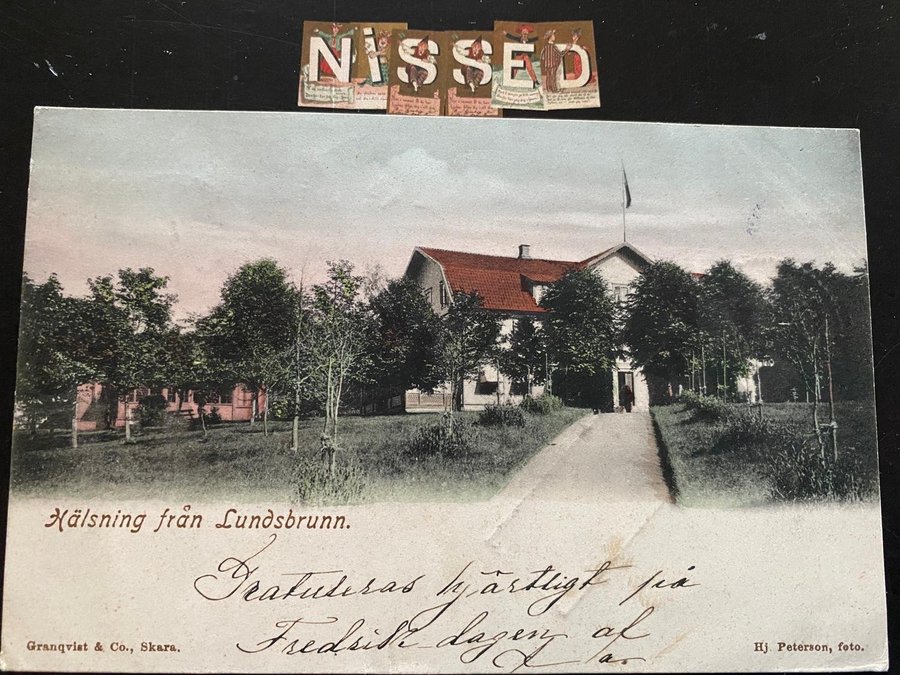 NiSSED
Hälsning från Lundsbrunn.
Gratuleras hjärtligt på
Fredrik-dagen af
Granqvist & Co., Skara.
Hj. Peterson, foto.